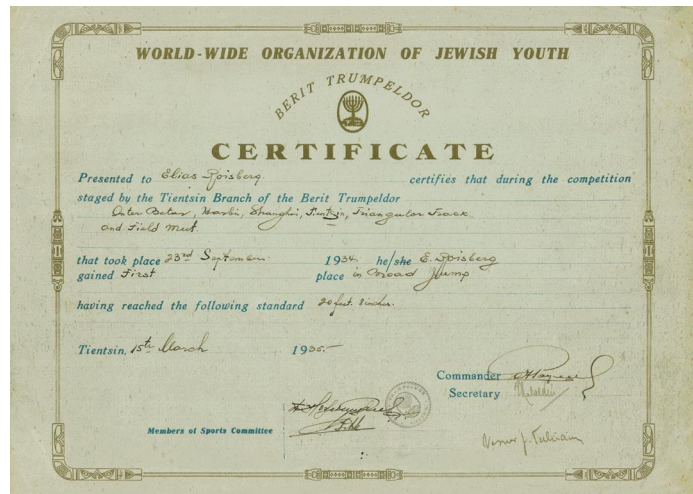 WORLD-WIDE ORGANIZATION OF JEWISH YOUTH
BERIT TRUMPELDOR
CERTIFICATE
Presented to Elias Spoisberg certifies that during the competition
staged by the Tientsin Branch of the Berit Trumpeldor
Inter Betar, Harbin, Shanghai, Tientsin, Triangular Track
and Field Meet.
that took place 23rd September 1934. he/she E. Spoisberg
gained First place in Broad Jump
having reached the following standard 20 feet. 8 inches.
Tientsin. 15th March 1935.-
Commander
Secretary
Members of Sports Committee